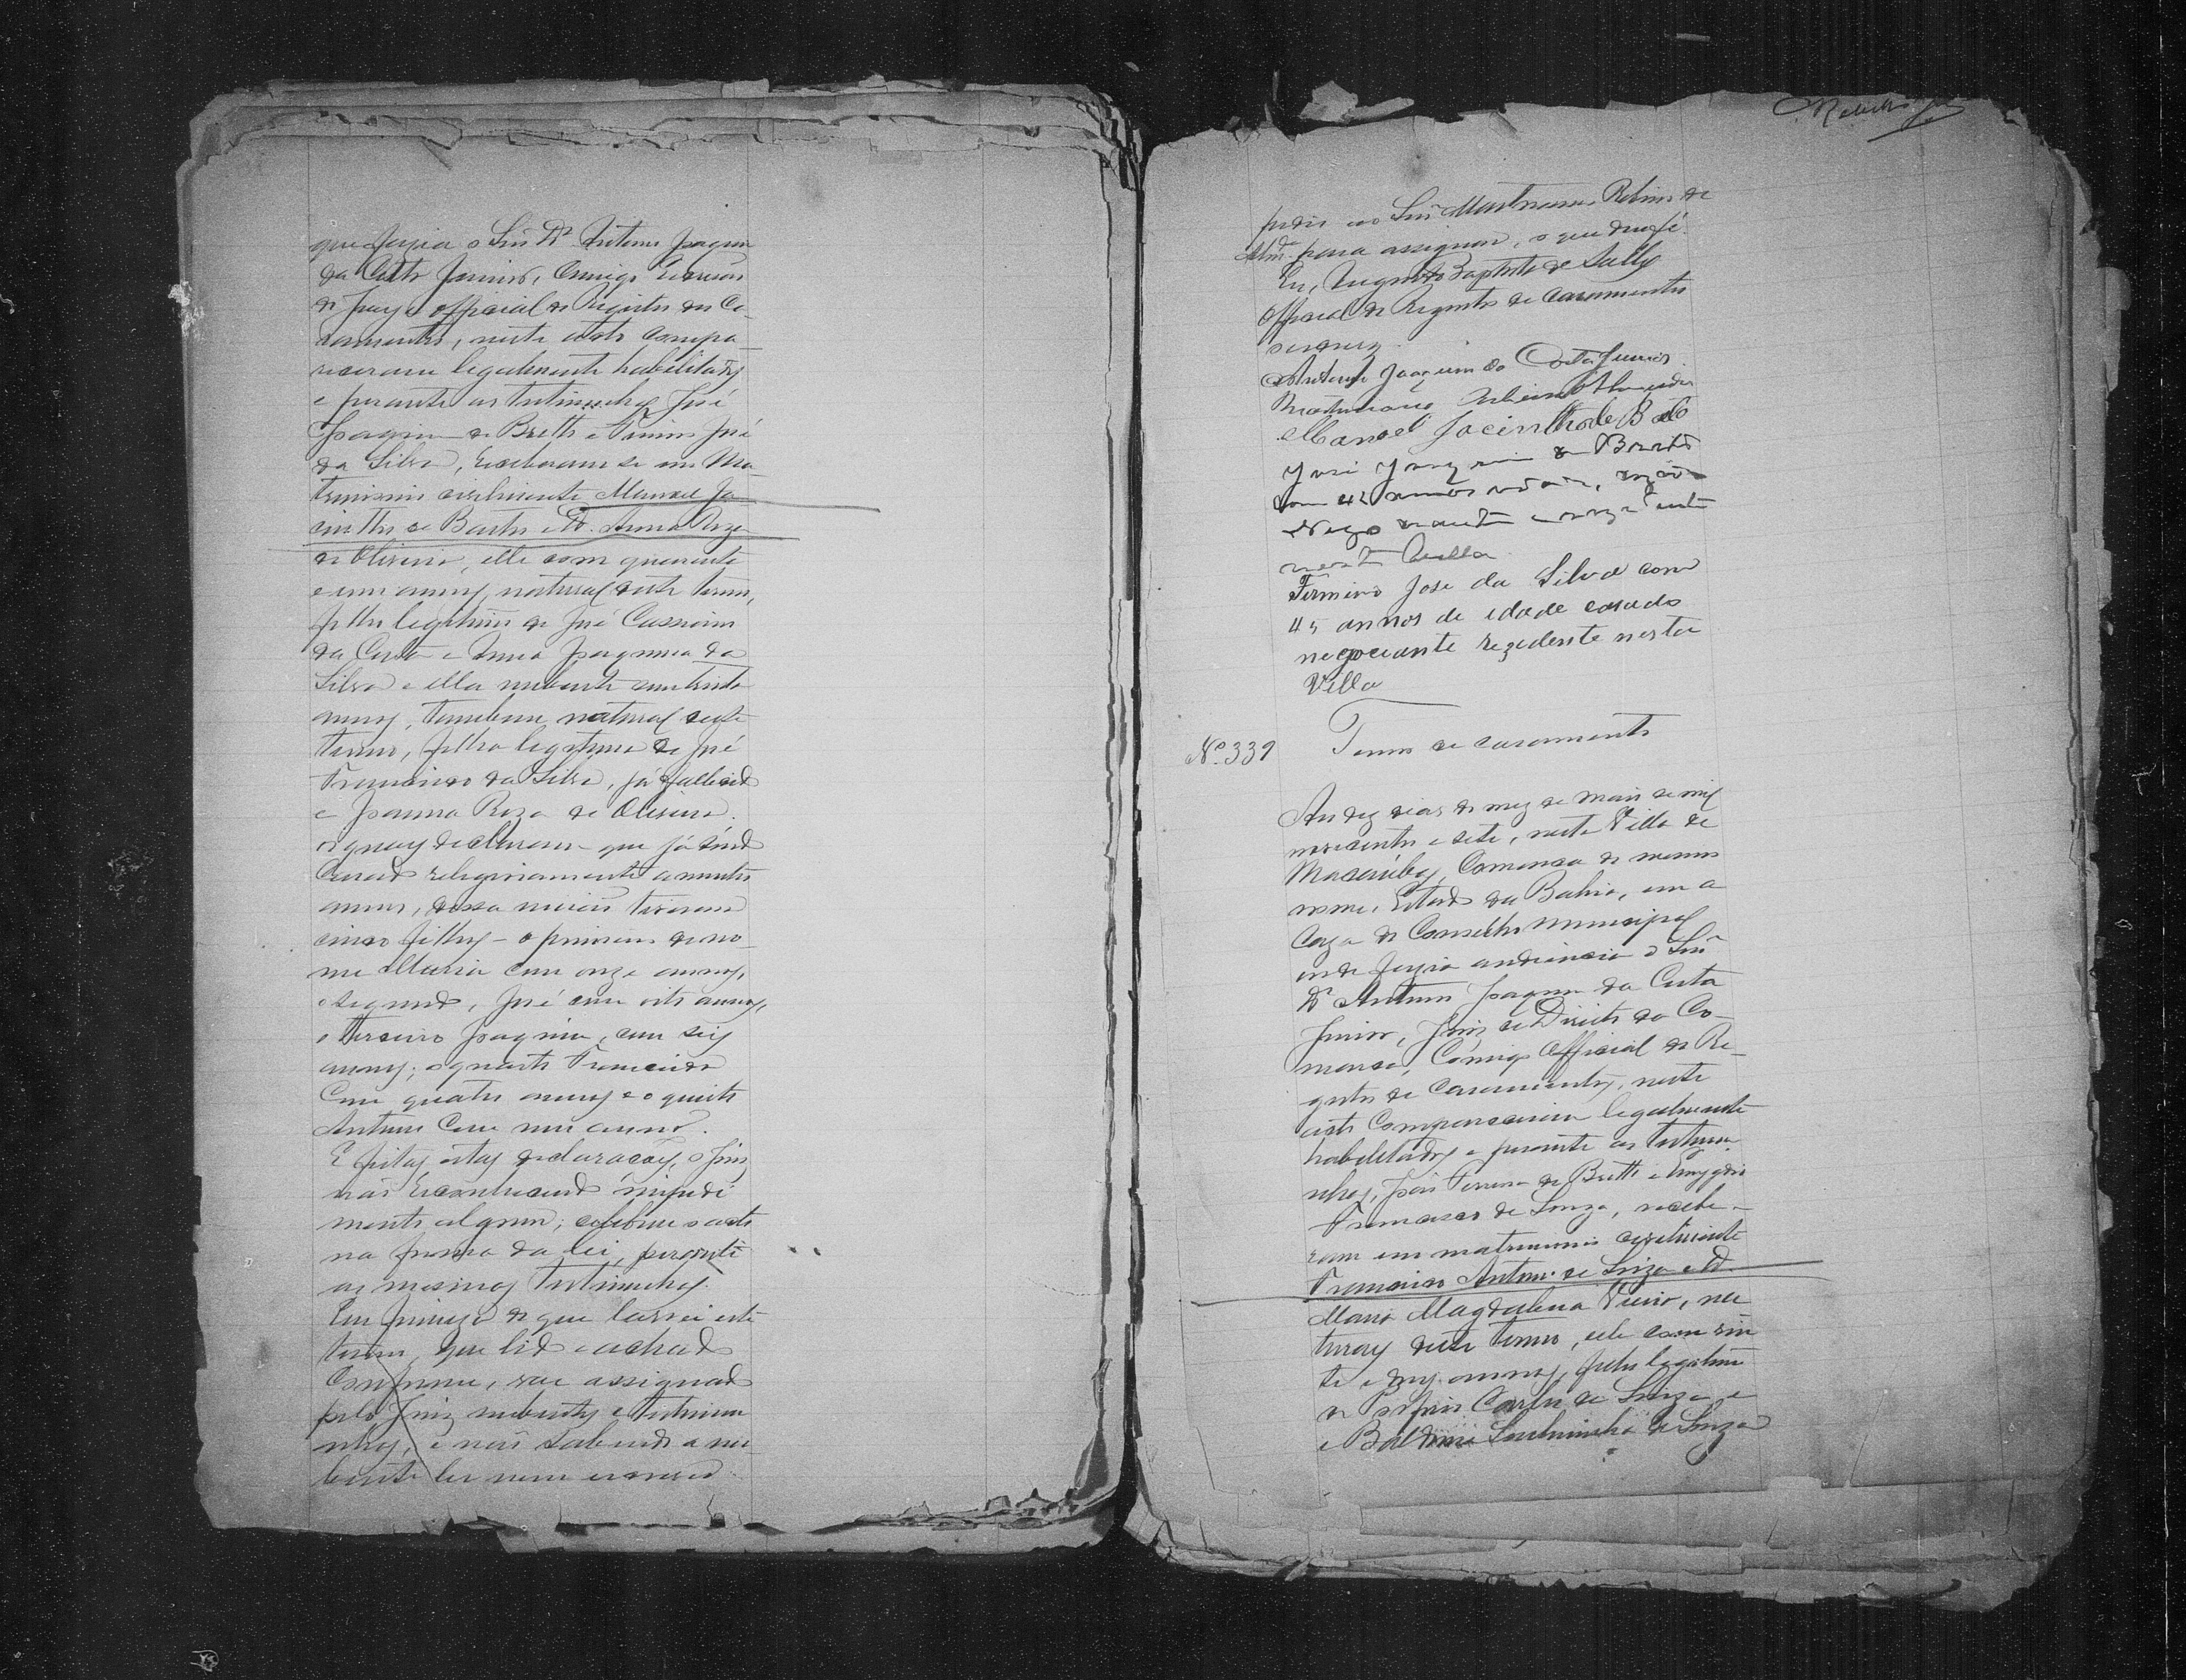 que fazia o Snr Dr Antonio Joaquim
da Costa Junior, Comigo Escrivão
de Paz e official do Registro dos Ca-
samentos, neste acto compa-
receram legalmente habilitados
e perante as testimunhas José
Joaquim de Britto e Firmino José
da Silva, receberam-se em Ma-
trimonio civilmente Manoel Ja-
cintho de Bastos e D. Anna Roza
de Oliveira, elle com quarenta
e um annos, natural deste termo,
filho legitimo de José Cassiano
da Costa e Anna Joaquina da
Silva e ella nubente com trinta
annos, tambem natural deste
termo, filha legitima de José
Francisco da Silva, já fallecido
e Joanna Roza de Oliveira.
os quaes declararam que já sendo
Casados religiosamente a muitos
annos, dessa união tiveram
cinco filhos – o primeiro de no-
me Maria com onze annos,
o segundo, José com oito annos,
o terceiro Joaquim, com seis
annos; o quarto Francisco
Com quatro annos e o quinto
Antonio Com um anno.
E feitas estas declarações, o Juiz
não reconhecendo impedi-
mento algum, celebrou o acto
na forma da lei, perante
as mesmas testimunhas.
Em firmeza do que lavrei este
termo, que lido e achado
Conforme, vae assignado
pelo Juiz nubentes e testimu-
nhas, e não sabendo a nu-
bente ler nem escrever
pedio ao Snr Martiniano Ribeiro de
Almda para assignar, o que dou fé.
Eu, Augusto Baptista de Salles
Official do Registro de Casamentos
escrevi.
Antonio Joaquim da Costa Junior
Martiniano Ribeiro Almeida
Manoel Jacintho de Basto
José Joaquim de Britto
com 42 annos
Negociante
nesta Villa
Firmino José da Silva com
45 annos de idade casado
negociante rezidente nesta
Villa
Nº 339 Termo de casamento
Aos dez dias do mez de Maio de mil
novecentos e sete, nesta Villa de
Macaúbas, Comarca do mesmo
nome, Estado da Bahia, em a
Caza do Conselho Municipal
onde fazia audiencia o Snr
Dr Antonio Joaquim da Costa
Junior, Juiz de Direito da Co-
marca, Comigo Official do Re-
gistro de Casamentos, neste
acto Compareceram legalmente
habilitados e perante as testimu-
nhas, José Pereira de Britto e Emygdio
Francisco de Souza, recebe-
ram em matrimonio civilmente
Francisco Antonio de Souza e D.
Maria Magdalena Vieira, na-
turaes deste termo, elle com vin-
te e dois annos, filho legitimo
de Carlos de Souza
e Souza